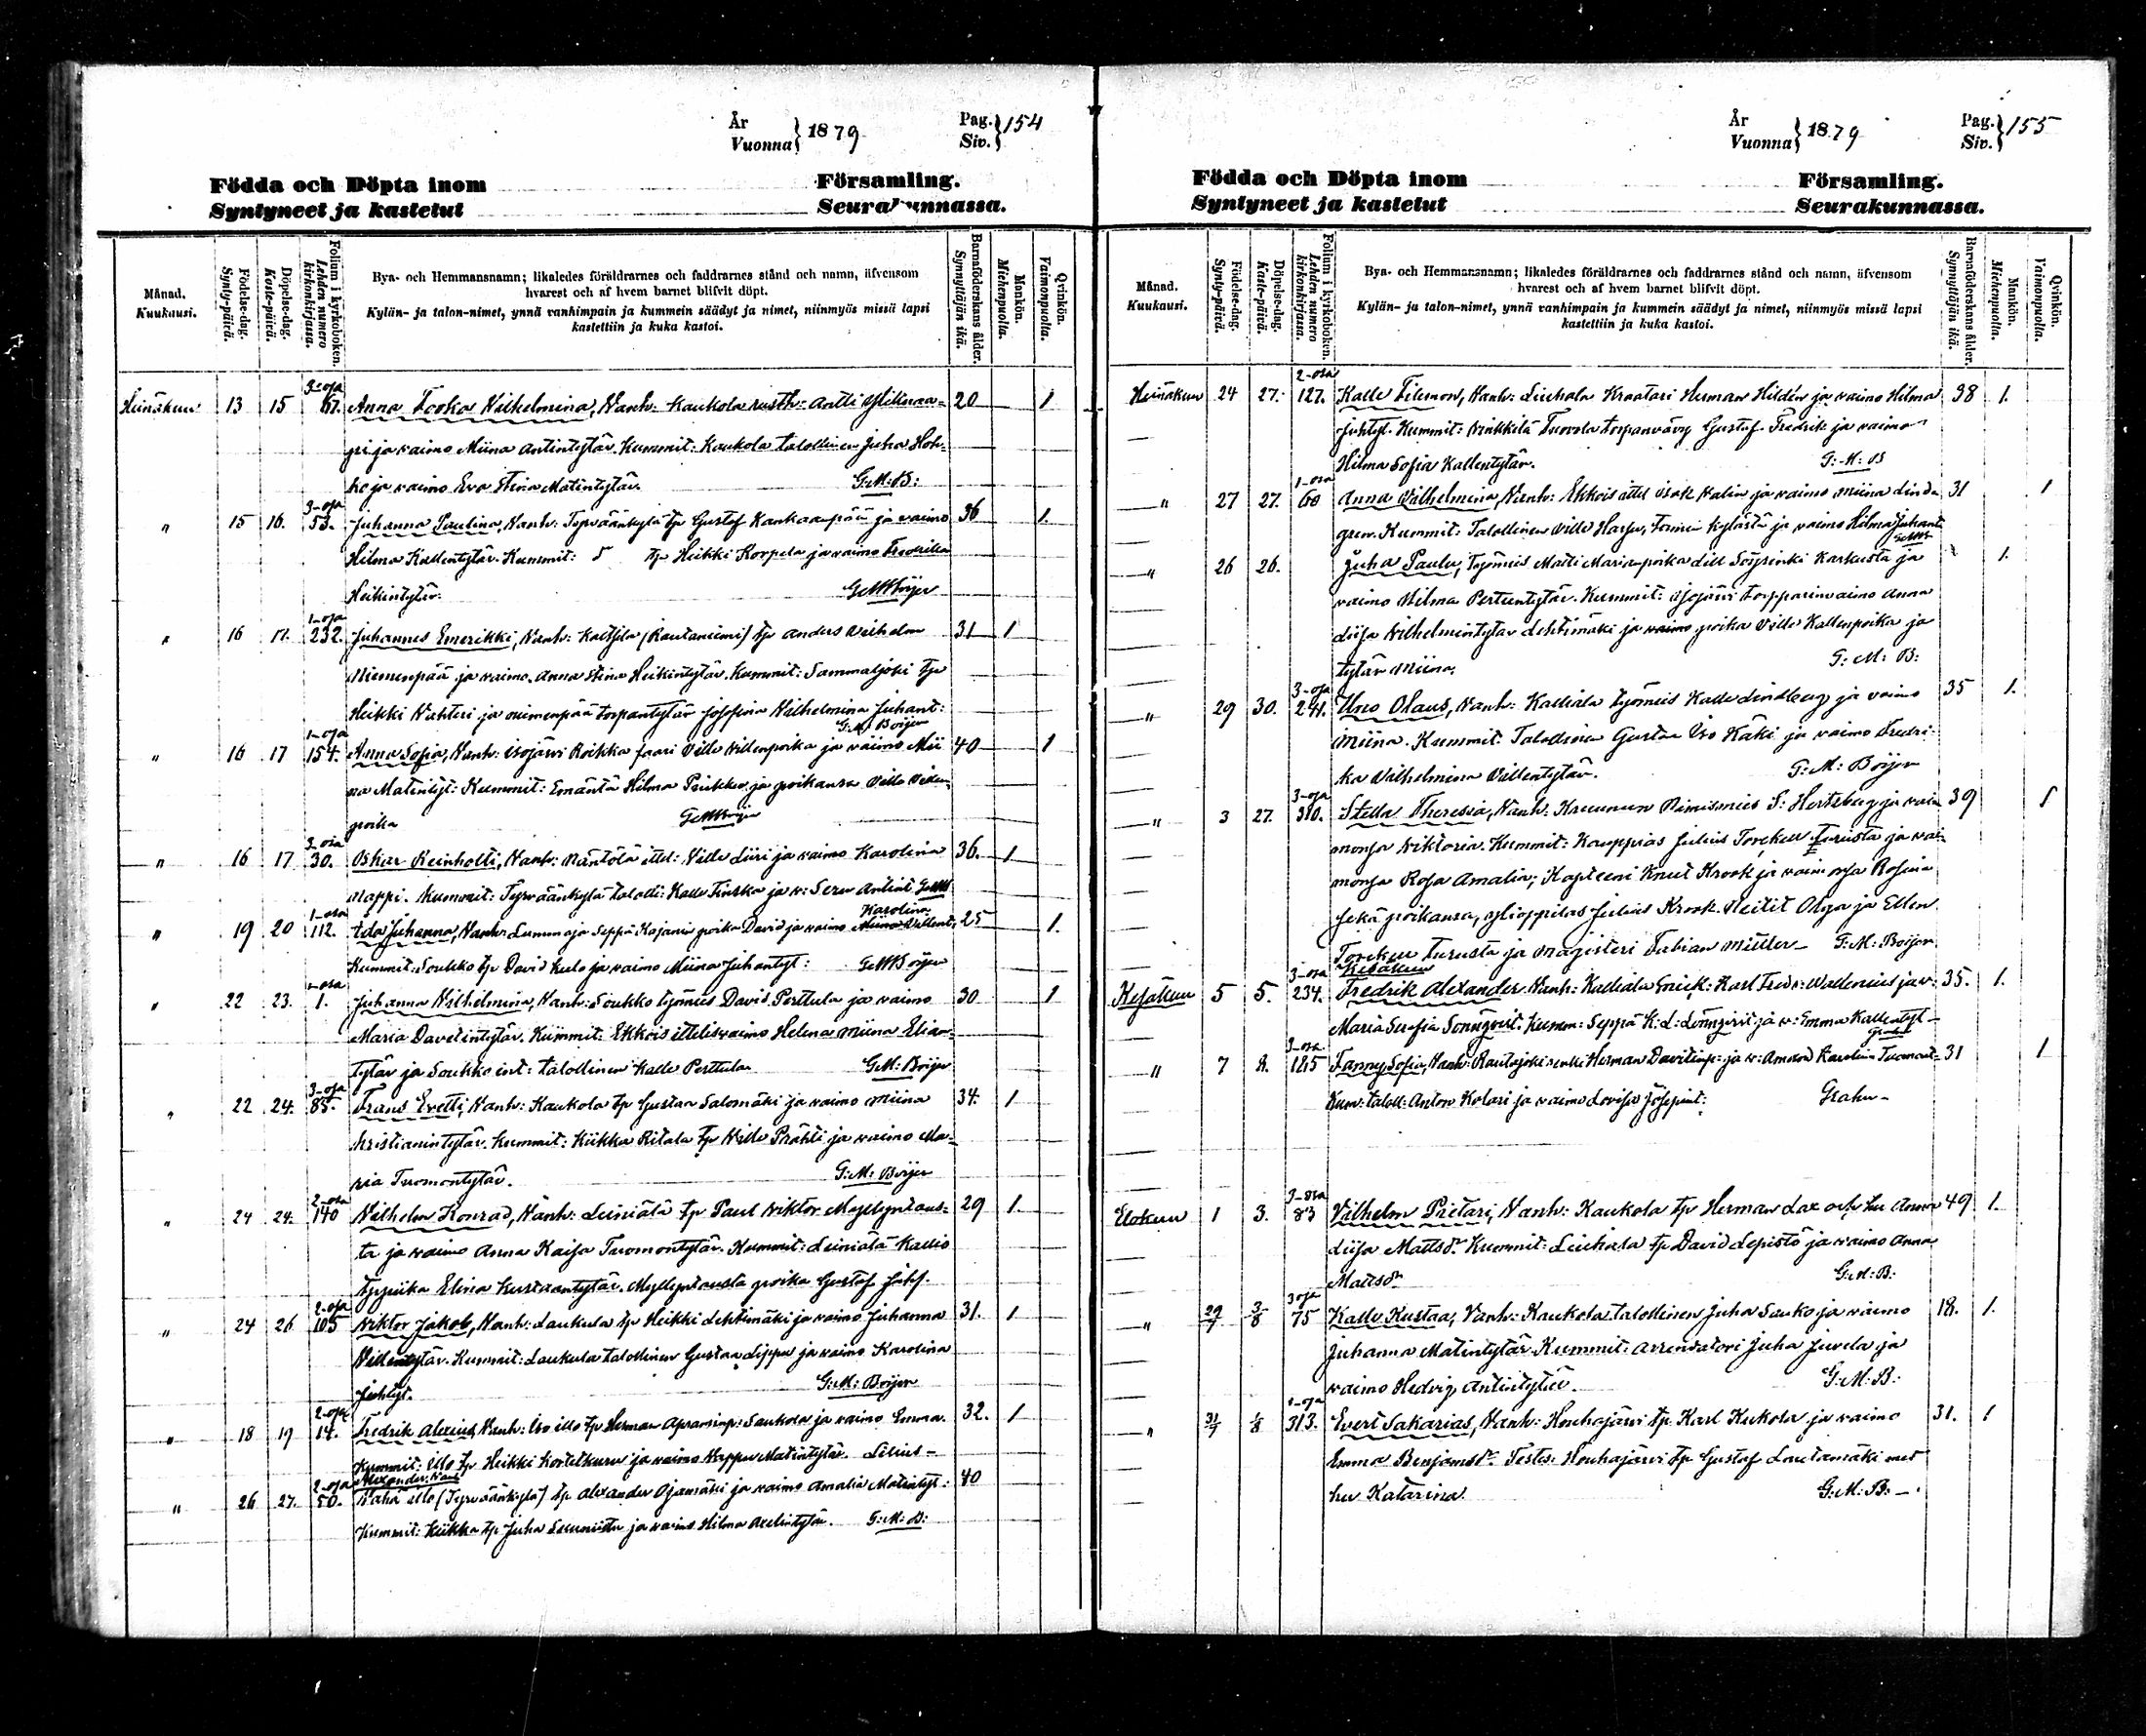 År
Vuonna } 1879
Pag.
Siv. } 154
Födda och Döpta inom Församling.
Syntyneet ja kastetut Seurakunnassa.
Månad.
Kuukausi.
Födelse-dag.
Synty-päivä.
Döpelse-dag.
Kaste-päivä.
Folium i kyrkoboken.
Lehden numero
kirkonkirjassa.
Bya- och Hemmansnamn; likaledes föräldrarnes och faddrarnes stånd och namn, äfvensom
hvarest och af hvem barnet blifvit döpt.
Kylän- ja talon-nimet, ynnä vanhimpain ja kummein säädyt ja nimet, niinmyös missä lapsi
kastettiin ja kuka kastoi.
Barnaföderskans ålder.
Synnyttäjän ikä.
Mankön.
Miehenpuolta.
Qvinkön.
Vaimonpuolta.
3-osa
Heinäkuu 13 15 Anna Wilhelmina, Vanh: Kaukola rusth: Antti 20 1
ja vaimo Miina Antintytär. Kummit: Kaukola talollinen Juha
ja vaimo Eva Stina Matintytär. G:M:B:
3-osa
" 15 16. 53. Juhanna Paulina, Vanh: Tyrväänkylä tp Gustaf Kankaanpää ja vaimo 36 1.
Hilma Kallentytär. Kummit: tp Heikki Korpela ja vaimo Fredrika
Heikintytär. G M Boijer
1-osa
" 16 17. 232. Johannes Emerikki, Vanh: (Rautaniemi) tp Anders Wilhelm 31 1
Niemenpää ja vaimo Anna Stina Heikintytär. Kummit: Sammaljoki tp
Heikki ja Niemenpää torpantytär Josefina Wilhelmina Juhant:
G.M. Boijer
1-osa
" 16 17 154. Anna Sofia, Vanh: Isojärvi Roikka faari Ville Villenpoika ja vaimo Mii 40 1
na Matintyt: Kummit: Emäntä Hilma ja poikansa Ville Villen
poika G M Boijer
3-osa
" 16 17 30. Oskar Reinholti, Vanh: Mäntölä ittel: Ville Liiri ja vaimo Karolina 36. 1
Nappi. Kummit: Tyrväänkylä talolli: Kalle ja v: Antint
1-osa Karolina
" 19 20 112. Ida Juhanna, Vanh: Lummaja Seppä Kajanin poika David ja vaimo Villent. 25 1.
Kummit: Soukko tp David Kulo ja vaimo Miina Juhantyt: G M Boijer
1-osa
" 22 23. 1. Juhanna Wilhelmina, Vanh: Soukko työmies David Perttula ja vaimo 30 1
Maria Davetintytär. Kummit: Ekkois ittelisvaimo Helena Miina Elian
tytär ja Soukko int: talollinen Kalle Perttula G.M: Boijer
3-osa
" 22 24. 85. Frans Evetti, Vanh: Kaukola tp Gustaa Salomäki ja vaimo Miina 34. 1
Kristianintytär. Kummit: Kiikka Ritala tp Ville Prähti ja vaimo Ma-
ria Tuomontytär. G:M: Boijer
2-osa
" 24 24. 140 Wilhelm Konrad, Vanh: Leiniälä tp Paul Viktor Myllyntaus- 29 1.
ta ja vaimo Anna Kaisa Tuomontytär. Kummit: Leiniälä Kallio
Elina Kustaantytär. Myllyntausta poika Gustaf
2-osa
" 24 26 105 Viktor Jakob, Vanh: Laukula tp Heikki Lehtimäki ja vaimo Juhanna 31. 1
Villentytär. Kummit: Laukula talollinen Gustaa Lippu ja vaimo Karolina
Juhtyt. G:M: Boijer
2-osa
" 18 19 14. Fredrik Alexius, Vanh: Iso illo tp Herman Apraminp: Saukola ja vaimo Emma 32. 1
Kummit: Illo tp Heikki Kortetkuru ja vaimo Matintytär. Lilius-
2-osa Alexander, Vanh:
" 26 27. 50. Vähä illo (Tyrväänkylä) tp Alexander Ojamäki ja vaimo Amalia Matintyt: 40
Kummit: Kiikka tp Juha ja vaimo Hilma Axelintytär. G:M:B:
År
Vuonna } 1879
Pag.
Siv. } 155
Födda och Döpta inom Församling.
Syntyneet ja kastetut Seurakunnassa.
Månad.
Kuukausi.
Födelse-dag.
Synty-päivä.
Döpelse-dag.
Kaste-päivä.
Folium i kyrkoboken.
Lehden numero
kirkonkirjassa.
Bya- och Hemmansnamn; likaledes föräldrarnes och faddrarnes stånd och namn, äfvensom
hvarest och af hvem barnet blifvit döpt.
Kylän- ja talon-nimet, ynnä vanhimpain ja kummein säädyt ja nimet, niinmyös missä lapsi
kastettiin ja kuka kastoi.
Barnaföderskans ålder.
Synnyttäjän ikä.
Mankön.
Miehenpuolta.
Qvinkön.
Vaimonpuolta.
2-osa
Heinäkuu 24 27. 127. Kalle Filemon, Vanh: Liuhala Kraatari Herman Hildén ja vaimo Hilma 38 1.
Juhtyt. Kummit: Vinkkilä Tuovola torpanvävy Gustaf Fredrik ja vaimo
Hilma Sofia Kallentytär. G:M:B
1-osa
" 27 27. 60 Anna Wilhelmina, Vanh: Ekkois ittel Isak Valin ja vaimo Miina Lind 31 1
gren. Kummit: Talollinen Ville Harju, kylästä ja vaimo Hilma Juhant.
" 26 26. Juha Paulu, Työmies Matti Marianpoika Karkusta ja 1.
vaimo Hilma Pertuntytär. Kummit: torpparinvaimo Anna
Liisa Vilhelmintytär Lehtimäki ja poika Ville Kallenpoika ja
tytär Miina. G:M:B:
3-osa
" 29 30. 241. Uno Olaus, Vanh: Kalliala työmies Kalle Lindberg ja vaimo 35 1.
Miina. Kummit: Talollinen Gustaa Iso Käki ja vaimo Fredri-
ka Wilhelmina Villentytär. G:M: Boijer
3-osa
" 3 27. 310. Stella Theresia, Vanh: Kruunun Nimismies S: Hertzberg ja vai 39 1
monsa Viktoria. Kummit: Kauppias Julius Torckell Turusta ja vai-
monsa Rosa Amalia; Kapteeni Knut Krook ja vaimonsa Rosina
sekä poikansa, ylioppilas Julius Krook. Neitit Olga ja Ellen
Torckell Turusta ja Magisteri Fabian Müller- G:M: Boijer
3-osa Kesäkuu
Kesäkuu 5 5. 234. Fredrik Alexander Vanh: Kalliala Karl Fredr: Wallenius ja v: 35. 1.
Maria Serafia Sonnqvist. Kumm: Seppä K: L: Lönnqvist ja v: Emma Kallentyt-
3-osa
" 7 8. 185 Fanny Sofia, Vanh: Rautajoki renki Herman Davitinp: ja v: Amanda Karolina Tuomont- 31 1
Kum: taloll: Anton Kolari ja vaimo Lovisa Josepint: Grahn-
3-osa
Elokuu 1 3. 83 Vilhelm Pietari, Vanh: Kaukola tp Herman Lax och hu Anna 49 1.
Liisa Mattsdr. Kummit: Liuhala tp David Lepistö ja vaimo Anna
Mattsdr G:M:B:
3 osa
" 29/7 3/8 75 Kalle Kustaa, Vanh: Kaukola talollinen Juha Sauko ja vaimo 18. 1.
Juhanna Matintytär. Kummit: Arrendatori Juha Juvela ja
vaimo Hedvig Antintytär. G:M:B:
1-osa
" 31/7 1/8 313. Evert Sakarias, Vanh: Houhajärvi tp Karl Kukola ja vaimo 31. 1
Emma Benjamsdr. Testes: Houhajärvi tp Gustaf Loutamäki med
hu Katarina. G:M:B:-